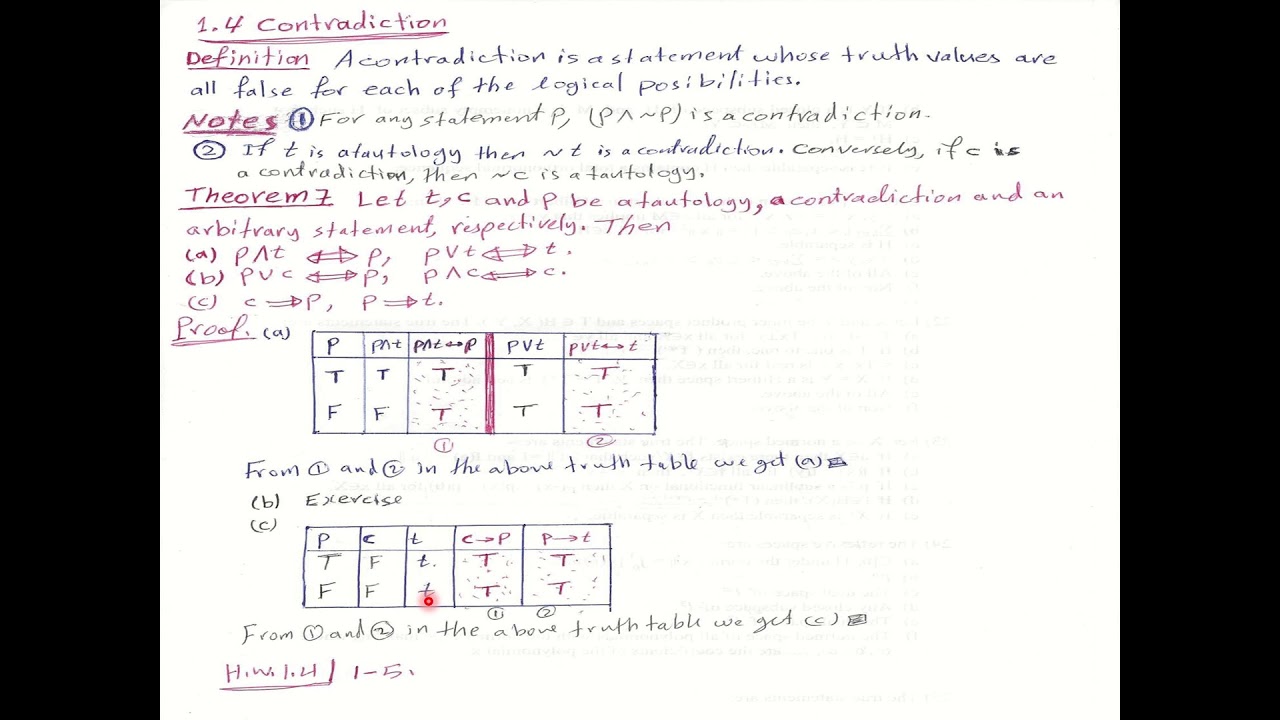 1.4 Contradiction
Definition A contradiction is a statement whose truth values are
all false for each of the logical posibilities.
Notes ① For any statement P, (P∧~P) is a contradiction.
② If t is a tautology then ~t is a contradiction. Conversely, if c is
a contradiction, then ~c is a tautology.
Theorem 7 Let t, c and p be a tautology, a contradiction and an
arbitrary statement, respectively. Then
(a) p∧t ⟺ p, p∨t ⟺ t.
(b) p∨c ⟺ p, p∧c ⟺ c.
(c) c ⟹ p, p ⟹ t.
Proof. (a)
P P∧t P∧t↔P P∨t P∨t↔t
T T T T T
F F T T T
① ②
From ① and ② in the above truth table we get (a)
(b) Exercise
(c)
P c t c→P P→t
T F t. T T
F F t T T
① ②
From ① and ② in the above truth table we get (c)
H.W. 1.4 / 1-5.